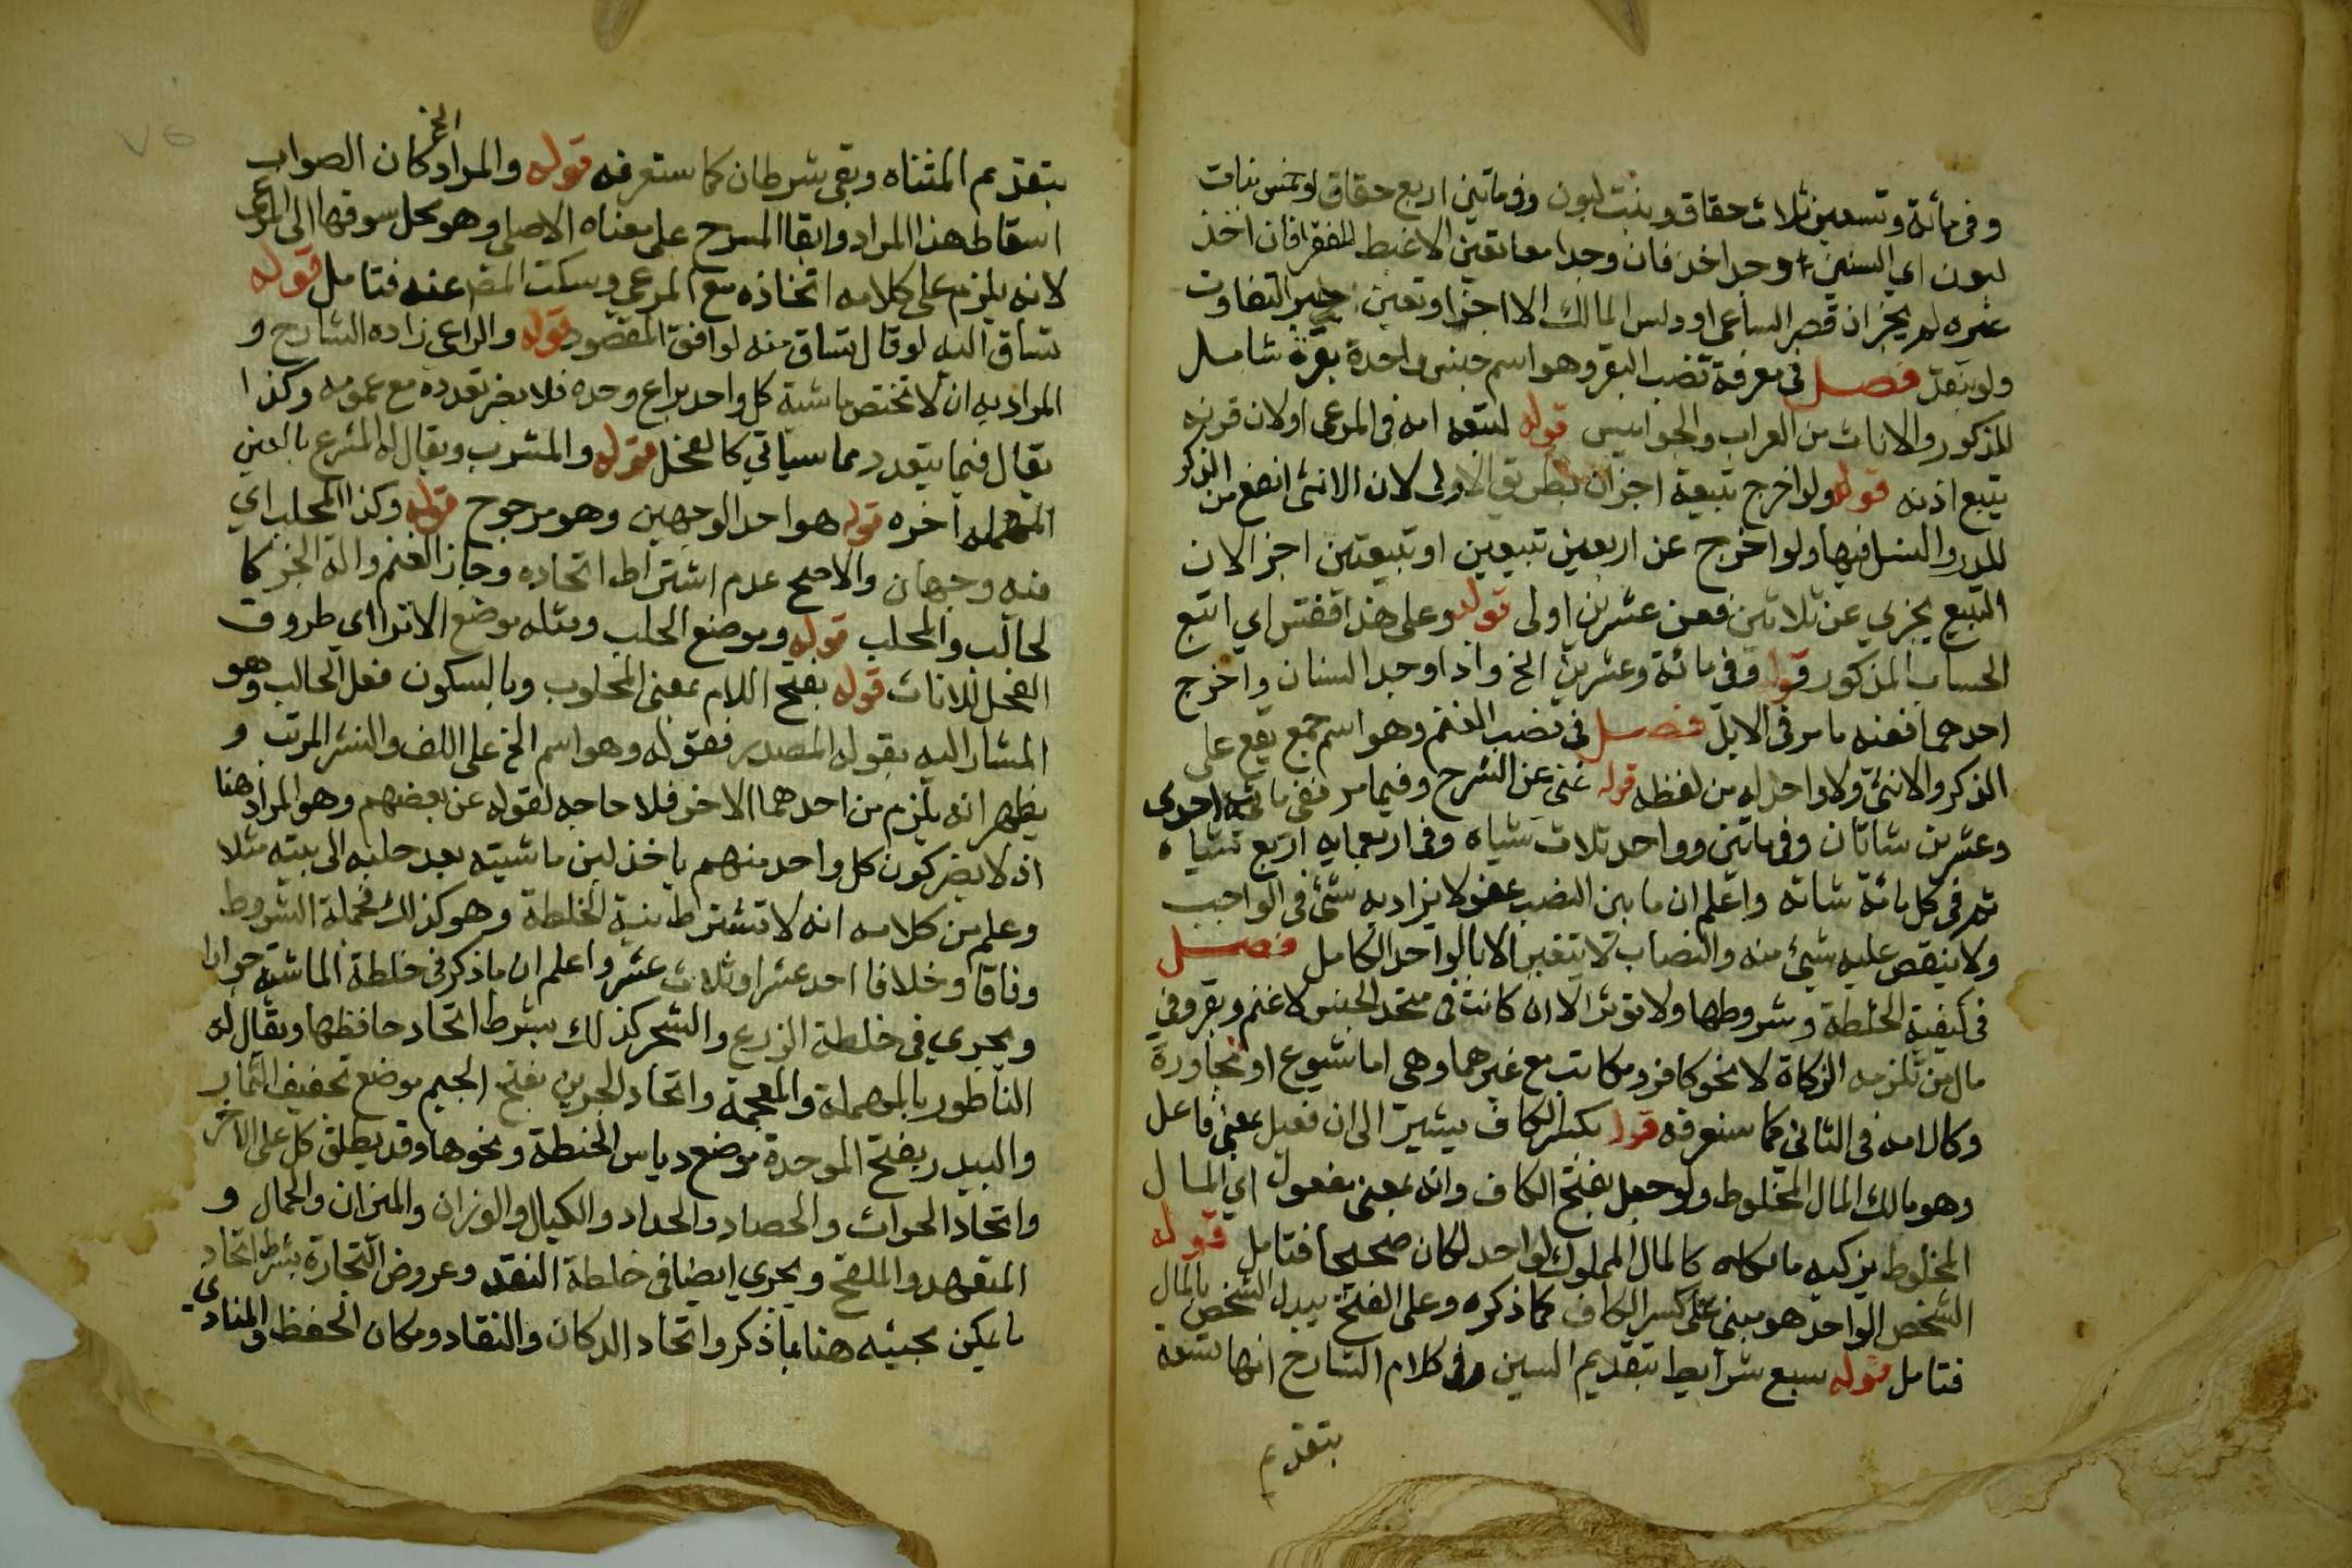 وفي مائة وتسعين ثلاث حقاق وبنت لبون وفي ماتين اربع حقاق او خمس بنات
لبون اي السنين وجد اخذ فان وجدا معا تعين الاغبط للفقرا فان اخذ
غيره لم يجز ان قصر الساعي او دلس المالك والا اجزا وتعين جبر التفاوت
ولو بنقد فصل في معرفة نصب البقر وهو اسم جنس واحدة بقرة شامل
للذكور والاناث من العراب والجواميس قوله لتبعه امه في المرعي او لان قرنه
يتبع اذنه قوله ولو اخرج تبيعة اجزات بطريق الاولى لان الانثى انفع من الذكر
للدر والنسل فيها ولو اخرج عن اربعين تبيعين او تبيعتين اجز الان
التبيع يجزي عن ثلاثين فعن عشرين اولى قوله وعلى هذا فقس اي اتبع
الحساب المذكور قوله وفي مائة وعشرين الخ واذا وجد السنان واخرج
احدهما ففيه ما مر في الابل فصل في نصب الغنم وهو اسم جمع يقع على
الذكر والانثى ولا واحد له من لفظه قوله غني عن الشرح وفيما مر ففي مائة احدى
وعشرين شاتان وفي ماتين وواحد ثلاث شياه وفي اربعمايه اربع شياه
ثم في كل مائة شاة واعلم ان ما بين النصب عفو لا يزاد به شئ في الواجب
ولا ينقص عليه شئ منه والنصاب لا يتغير الا بالواحد الكامل فصل
في كيفية الخلطة وشروطها ولا توثر الا ان كانت في متحد الجنس لا غنم وبقر وفي
مال من تلزمه الزكاة لا نحو كافر ومكاتب مع غيرهما وهي اما شيوع او مجاورة
وكلامه في الثاني كما ستعرفه قوله بكسر الكاف يشير الى ان فعيل بمعنى فاعل
وهو مالك المال المخلوط ولو جعل بفتح الكاف وانه بمعنى مفعول اي المال
المخلوط يزكيه مالكاه كالمال المملوك لواحد لكان صحيحا فتامل قوله
الشخص الواحد هو مبني على كسر الكاف كما ذكره وعلى الفتح يبدل الشخص بالمال
فتامل قوله سبع شرايط بتقديم السين وفي كلام الشارح انها تسعة
بتقديم
بتقديم المثناه وبقي شرطان كما ستعرفه قوله والمراد الخ كان الصواب
اسقاط هذا المراد وابقا المسرح على معناه الاصلي وهو محل سوقها الى المرعى
لانه يلزم على كلامه اتخاذه مع المرعي وسكت المص عنه فتامل قوله
تساق اليه لو قال تساق منه لوافق المقصود قوله والراعي زاده الشارح و
المراد به ان لا تختص ماشية كل واحد براع وحده فلا يضر تعدده مع عمومه وكذا
يقال فيما يتعدد مما سياتي كالفحل قوله والمشرب ويقال له المشرع بالعين
المهمله اخره قوله هو احد الوجهين وهو مرجوح قوله وكذا المحلب اي
فيه وجهان والاصح عدم اشتراط اتحاده وجاز الغنم والة الجز كا
لحالب والمحلب قوله وموضع الحلب ومثله موضع الانزا اي طروق
الفحل للاناث قوله بفتح اللام بمعنى المحلوب وبالسكون فعل الحالب وهو
المشار اليه بقوله المصدر فقوله وهو اسم الخ على اللف والنشر المرتب و
يظهر انه يلزم من احدهما الاخر فلا حاجه لقوله عن بعضهم وهو المراد هنا
اذ لا يضر كون كل واحد منهم ياخذ لبن ماشيته بعد حلبه الى بيته مثلا
وعلم من كلامه انه لا تشترط بنية الخلطة وهو كذلك فجملة الشروط
وفاقا وخلافا احد عشر او ثلاث عشر واعلم ان ما ذكر في خلطة الماشية جوارا
ويجري في خلطة الزرع والشجر كذلك بشرط اتحاد حافظها ويقال له
الناطور بالمهملة والمعجمة واتحاد الجرين بفتح الجيم موضع تجفيف الثمار
والبيدر بفتح الموحدة موضع دياس الحنطة ونحوها وقد يطلق كل على الاخر
واتحاد الحراث والحصاد والحداد والكيال والوزان والميزان والحمال و
المتعهد والملقح ويجري ايضا في خلطة النقد وعروض التجارة بشرط اتحاد
ما يمكن مجيئه هنا مما ذكر واتحاد الدكان والنقاد ومكان الحفظ والمنادي